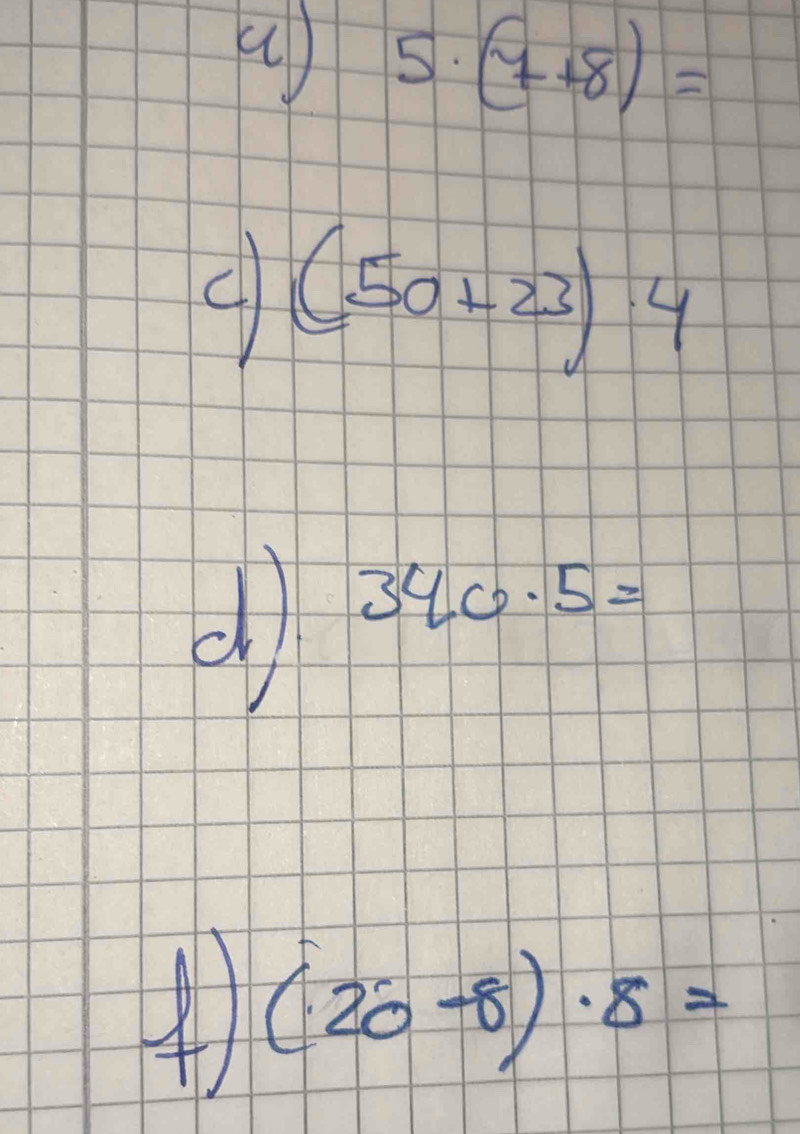 a) 5·(7+8)=
c) (50+23)·4
d) 340·5=
f) (20-8)·8=